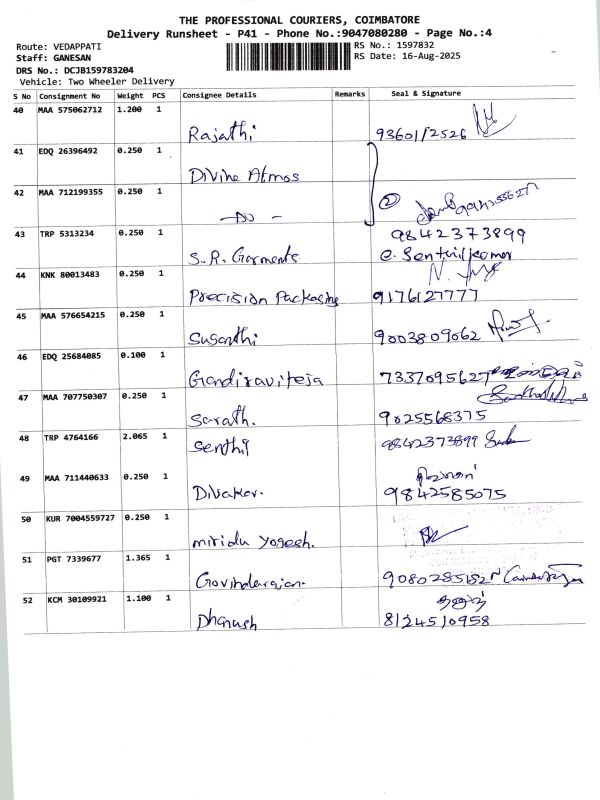 THE PROFESSIONAL COURIERS, COIMBATORE
Delivery Runsheet - P41 - Phone No.:9047080280 - Page No.:4
Route: VEDAPPATI
RS No.: 1597832
Staff: GANESAN
RS Date: 16-Aug-2025
DRS No.: DCJB159783204
Vehicle: Two Wheeler Delivery
S No Consignment No Weight PCS Consignee Details Remarks Seal & Signature
40 MAA 575062712 1.200 1
Rajathi 93601/2526
41 EDQ 26396492 0.250 1
Divine Atmos
42 MAA 712199355 0.250 1
- Do - 2
43 TRP 5313234 0.250 1 9842373899
S.R. Garments e. Senthilkumar
44 KNK 80013483 0.250 1
Precision Packaging 9176127777
45 MAA 576654215 0.250 1
Susanthi 9003809062
46 EDQ 25684085 0.100 1
Gandiraviteja 7337095627
47 MAA 707750307 0.250 1
Sarath. 9025568375
48 TRP 4764166 2.065 1
Senthil 9842373899
49 MAA 711440633 0.250 1
Divakar. 9842585075
50 KUR 7004559727 0.250 1
mitidu yogesh.
51 PGT 7339677 1.365 1
Govindarajan. 9080285182
52 KCM 30109921 1.100 1
Dhanush 8124510958